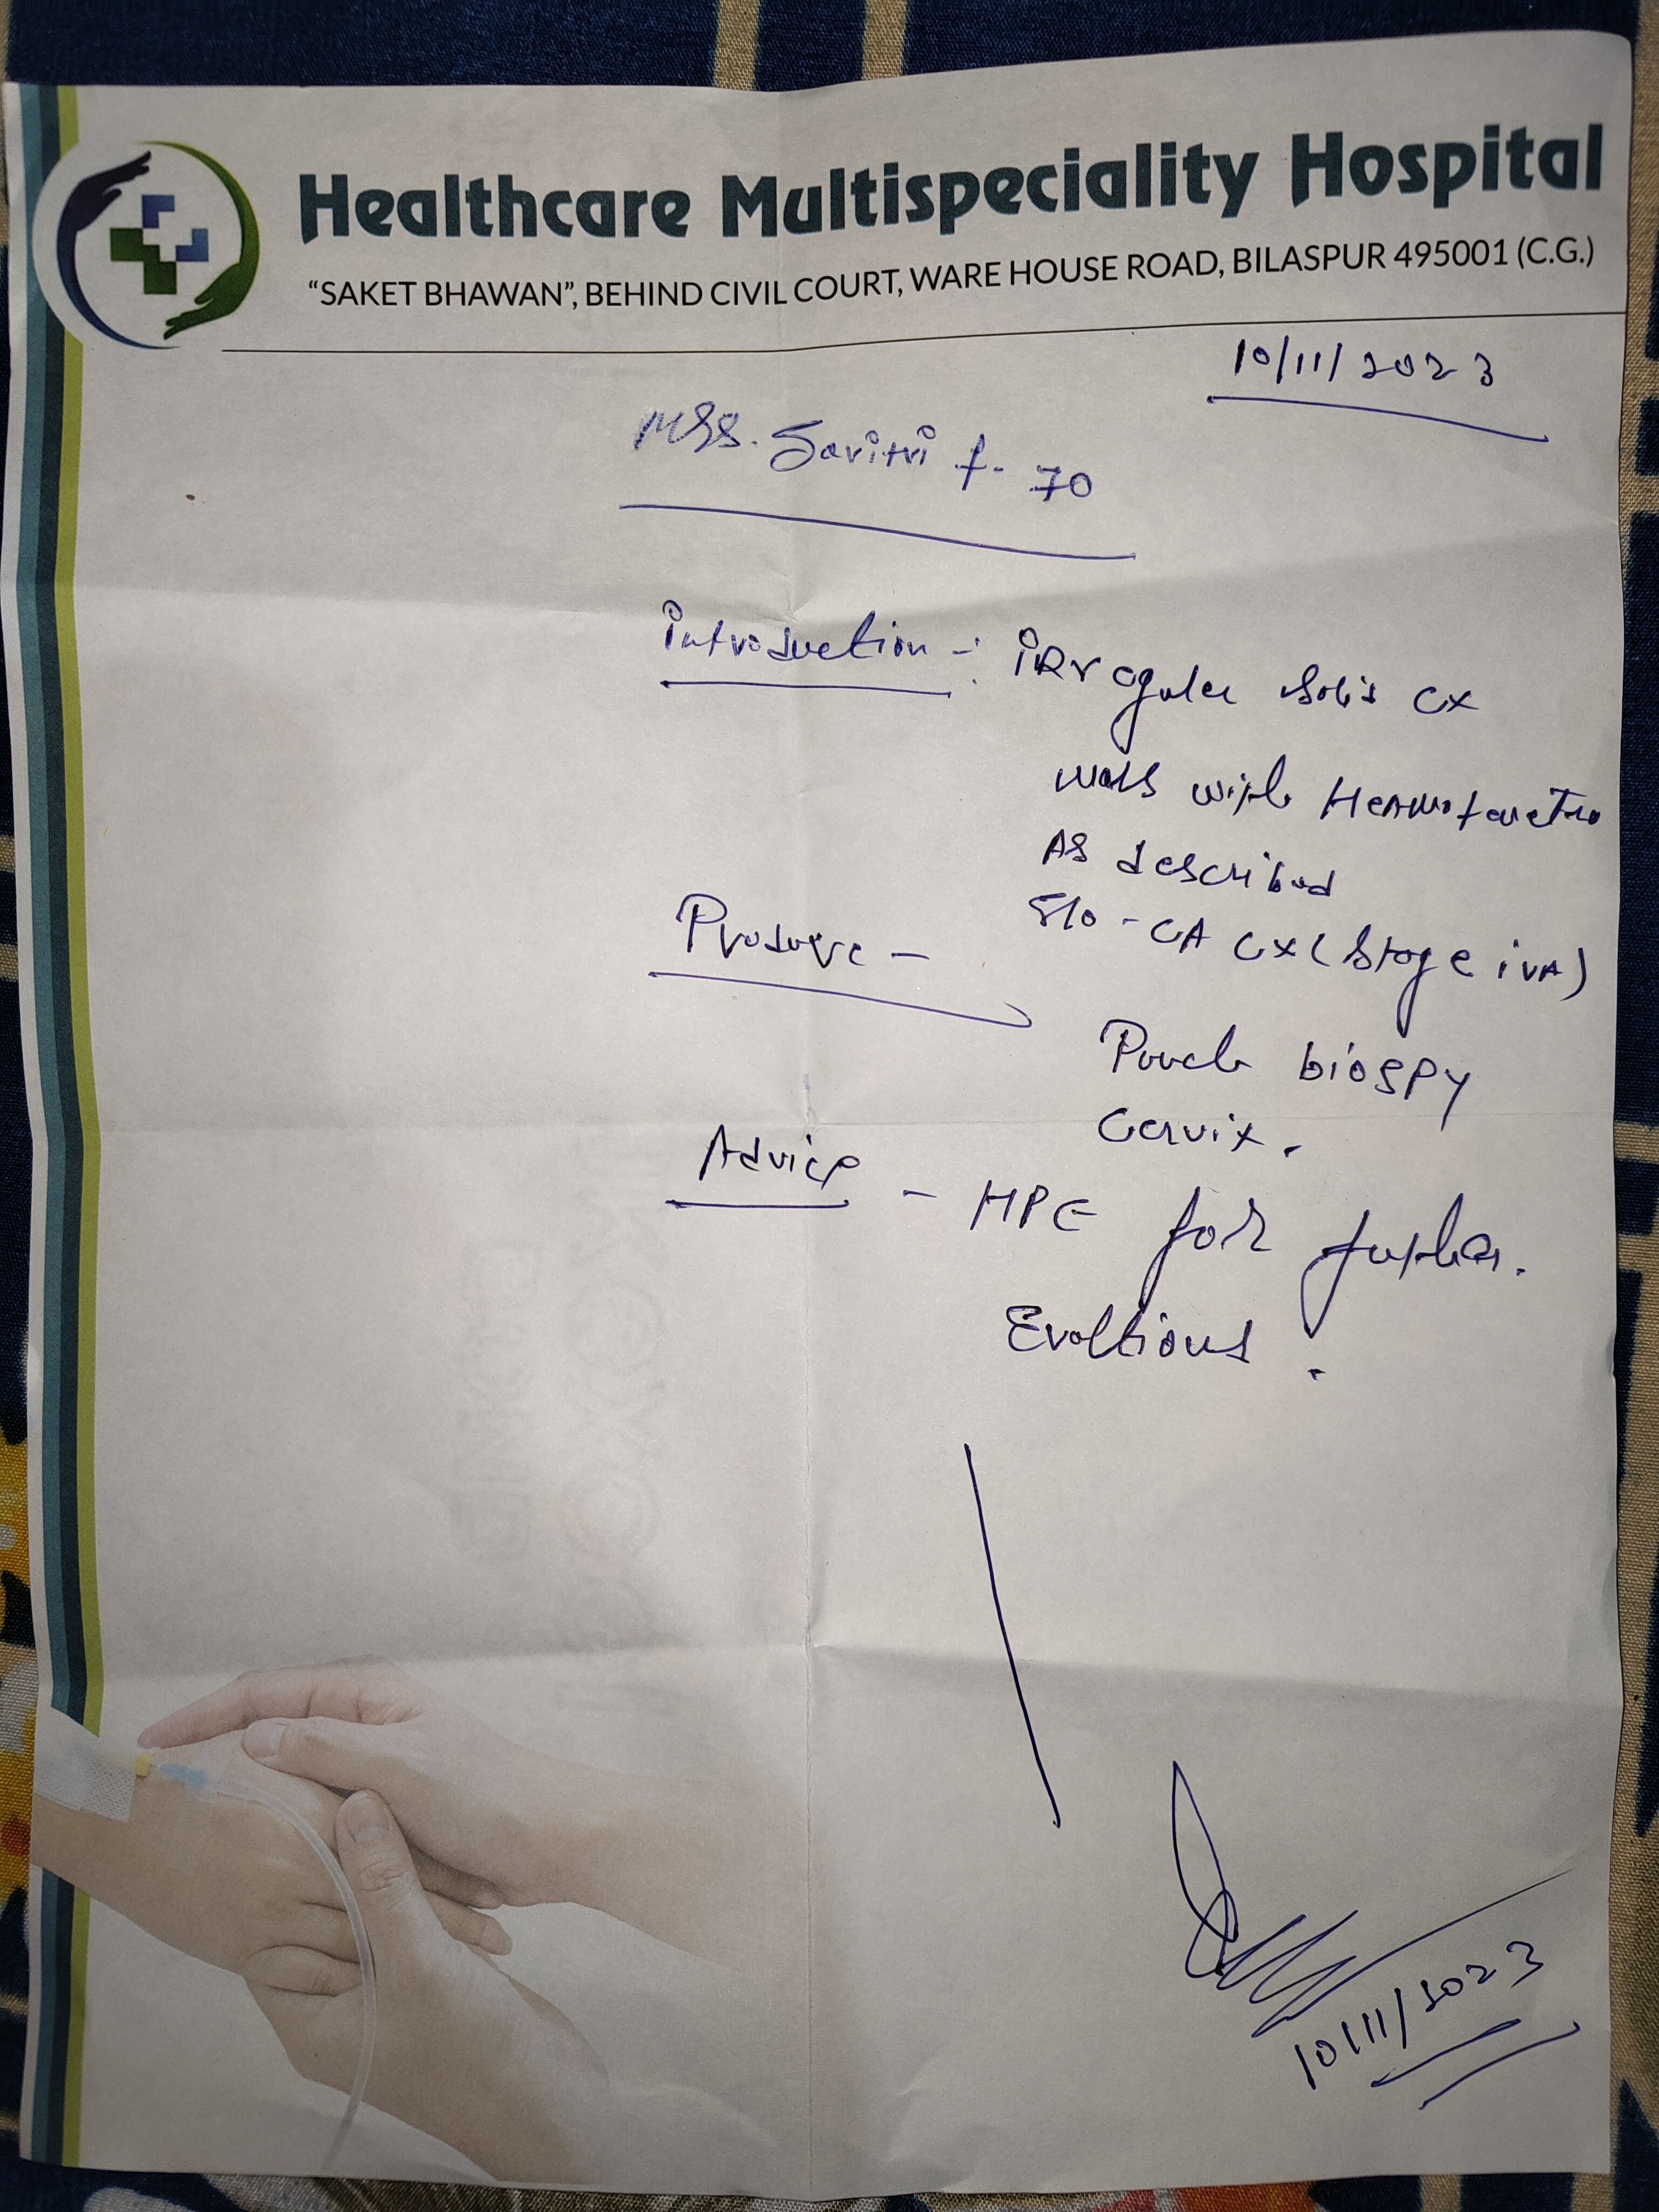 Healthcare Multispeciality Hospital
"SAKET BHAWAN", BEHIND CIVIL COURT, WARE HOUSE ROAD, BILASPUR 495001 (C.G.)
10/11/2023
Mrs. Savitri f- 70
Introduction -: iRregular Solid CX
mass with
As described
S/o - CA CX (Stage ivA)
Advice
Punch biospy
Cervix.
- HPE for
10/11/2023